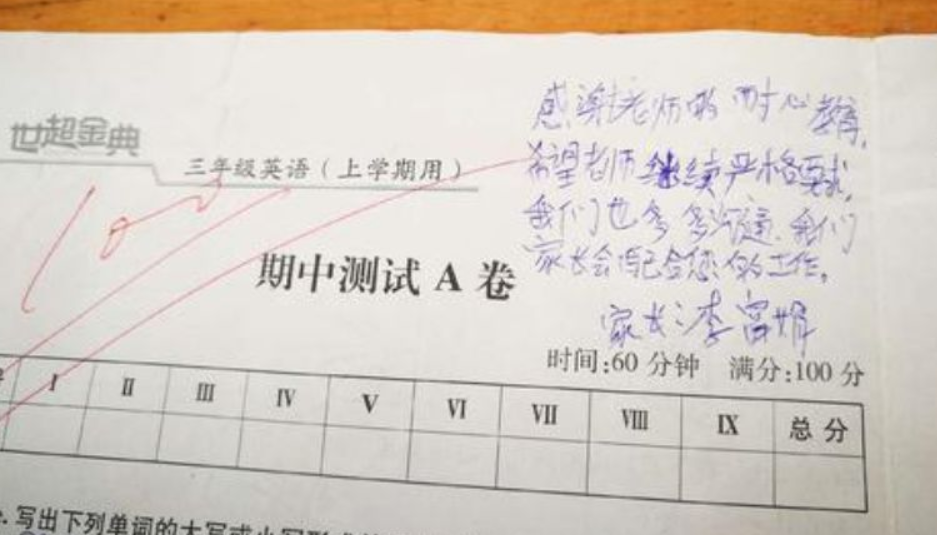 世超金典
三年级英语（上学期用）
100
感谢老师的耐心教育，
希望老师继续严格要求，
我们也多多沟通，我们
家长会配合您的工作。
家长：李富娟
期中测试 A 卷
时间:60 分钟 满分:100 分
I II III IV V VI VII VIII IX 总 分
写出下列单词的大写或小写形式